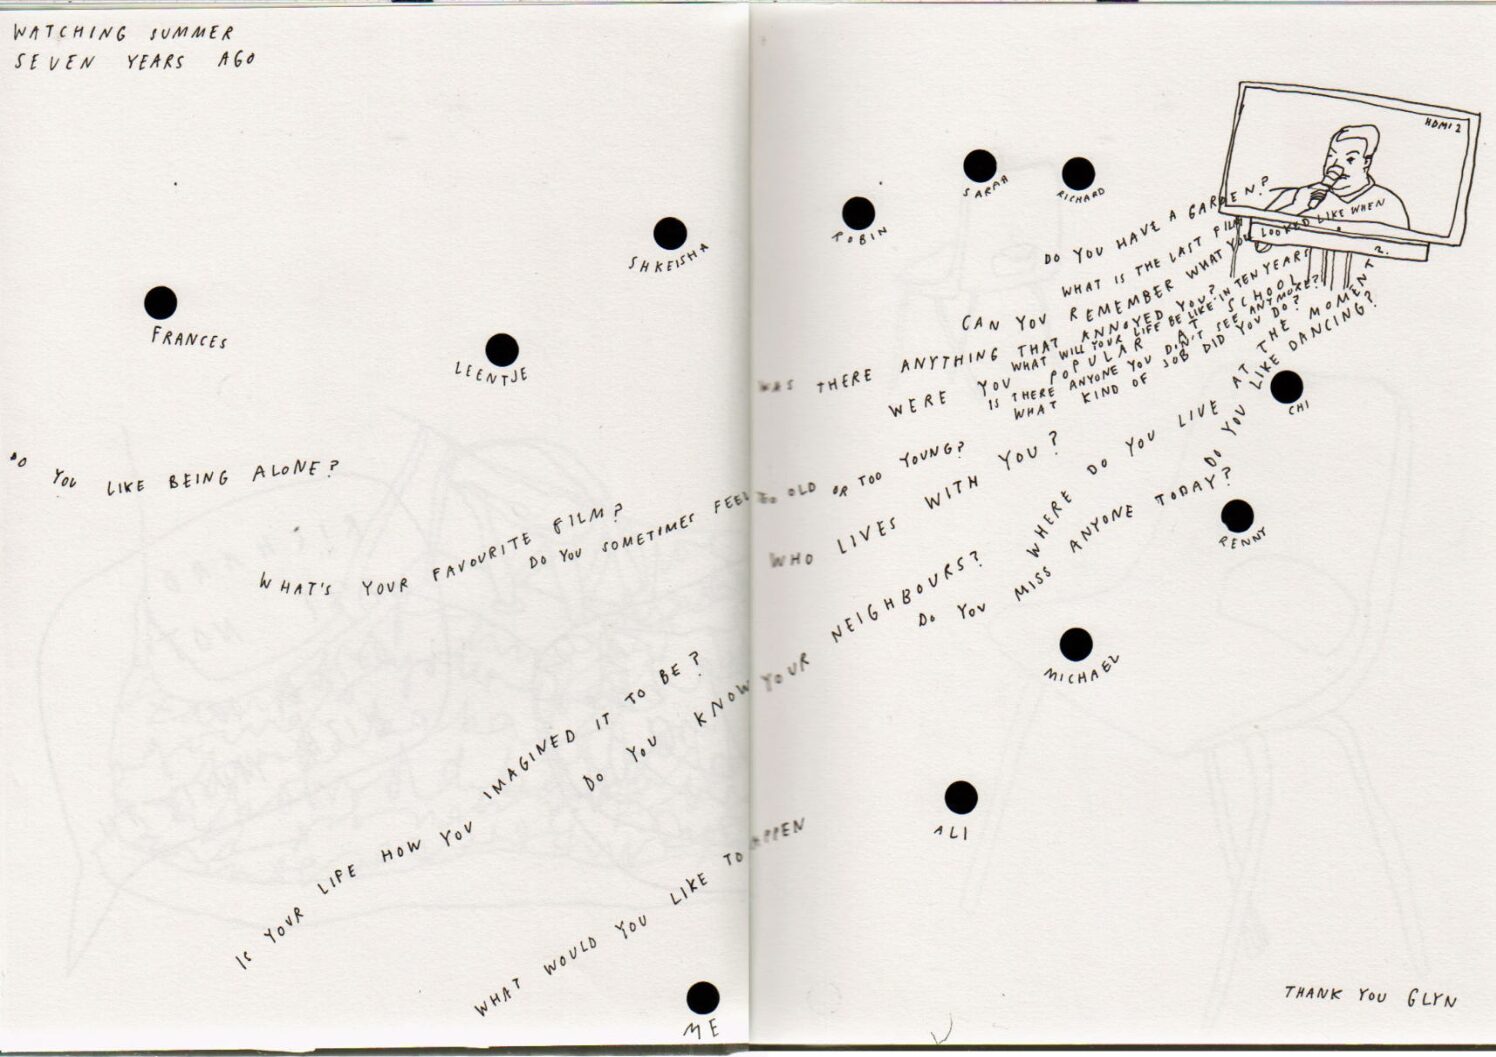 WATCHING SUMMER
SEVEN YEARS AGO
HDMI 2
SARAH
RICHARD
ROBIN
SHKEISHA
FRANCES
LEENTJE
DO YOU HAVE A GARDEN?
WHAT IS THE LAST FILM
CAN YOU REMEMBER WHAT YOU LOOKED LIKE WHEN
2.
WAS THERE ANYTHING THAT ANNOYED YOU?
WHAT WILL YOUR LIFE BE LIKE IN TEN YEARS
WERE YOU POPULAR AT SCHOOL
IS THERE ANYONE YOU DIDN'T SEE ANYMORE?
WHAT KIND OF JOB DID YOU DO?
CHI
DO YOU LIKE BEING ALONE?
WHAT'S YOUR FAVOURITE FILM?
DO YOU SOMETIMES FEEL TOO OLD OR TOO YOUNG?
WHO LIVES WITH YOU?
WHERE DO YOU LIVE AT THE MOMENT
DO YOU LIKE DANCING?
DO YOU MISS ANYONE TODAY?
RENNY
MICHAEL
IS YOUR LIFE HOW YOU IMAGINED IT TO BE?
DO YOU KNOW YOUR NEIGHBOURS?
ALI
WHAT WOULD YOU LIKE TO HAPPEN
ME
THANK YOU GLYN